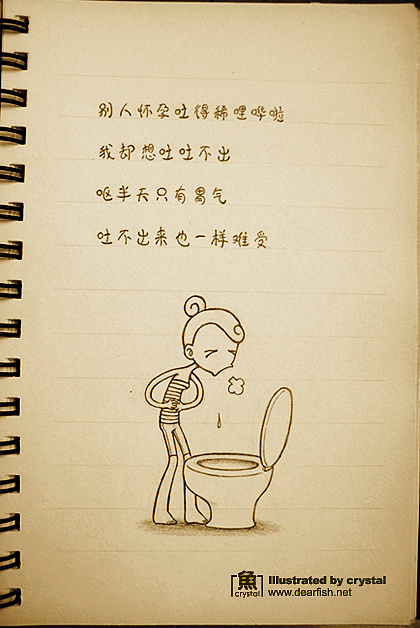 别人怀孕吐得稀哩哗啦
我却想吐吐不出
呕半天只有胃气
吐不出来也一样难受
魚
crystal
Illustrated by crystal
www.dearfish.net